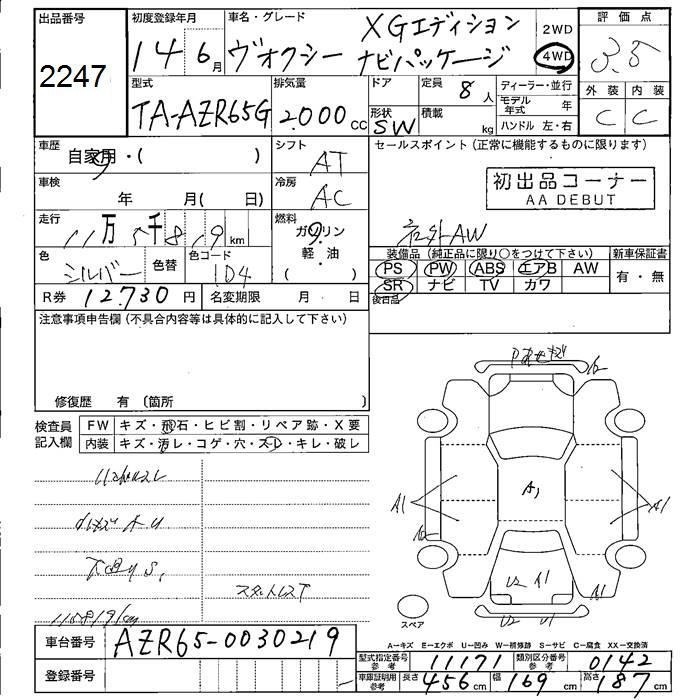 出品番号
2247
初度登録年月
14 6月
車名・グレード
XGエディション
ヴォクシー ナビパッケージ
2WD
4WD
評価点
3.5
外装 内装
C C
型式
TA-AZR65G
排気量
2.000cc
ドア
形状
SW
定員
8人
積載
kg
ディーラー・並行
モデル年式 年
ハンドル 左・右
車歴
自家用・( )
シフト
AT
セールスポイント(正常に機能するものに限ります)
初出品コーナー
AA DEBUT
社外AW
車検
年 月( 日)
冷房
AC
走行
11万5千819km
燃料
ガソリン
軽・油
( )
色
シルバー
色替
色コード
1D4
装備品(純正品に限り○をつけて下さい)
PS PW ABS エアB AW
SR ナビ TV カワ
後日品
新車保証書
有・無
R券 12.730円
名変期限 月・日
注意事項申告欄(不具合内容等は具体的に記入して下さい)
修復歴 有(箇所 )
検査員記入欄
FW キズ・飛石・ヒビ割・リペア跡・X要
内装 キズ・汚レ・コゲ・穴・スレ・キレ・破レ
スタットレスT
A1
A1
A1
U2 A1
A1
U2 U1
スペア
車台番号 AZR65-0030219
登録番号
A-キズ E-エクボ U-凹み W-補修跡 S-サビ C-腐食 XX-交換済
型式指定番号 参考 11171
類別区分番号 参考 0142
車庫証明用 参考 長さ 456cm 幅 169cm 高さ 187cm